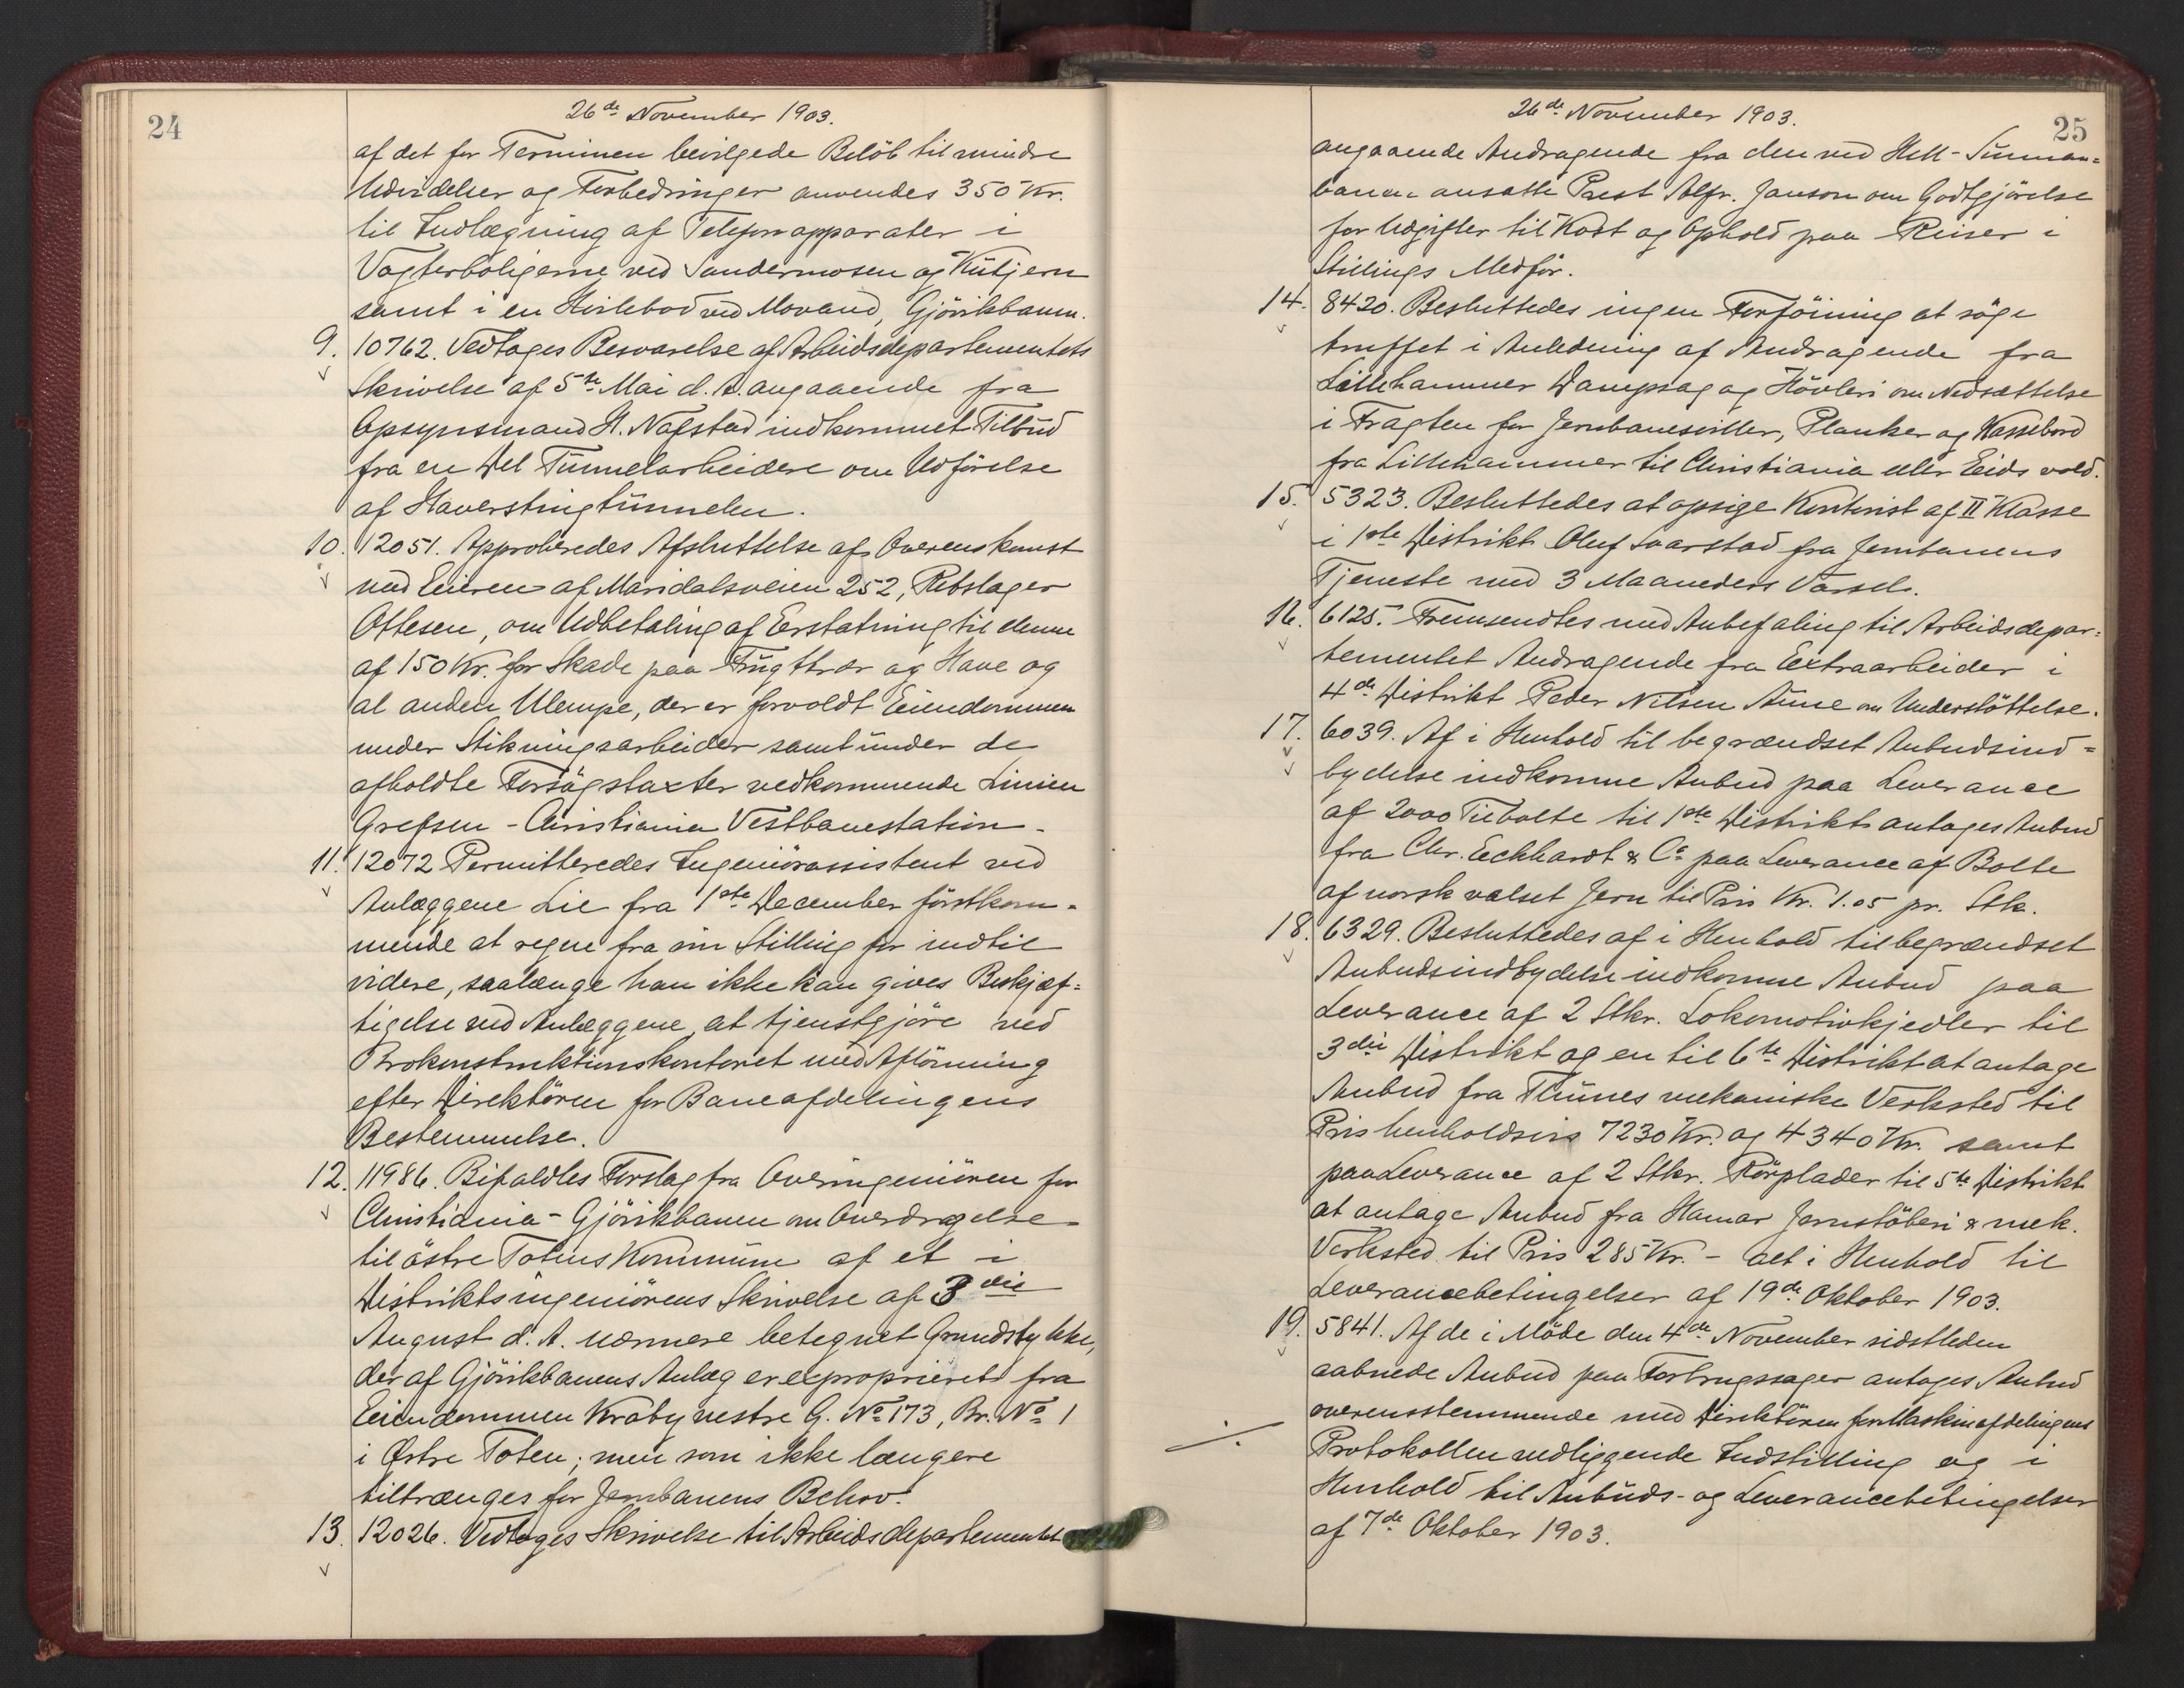 24
26de November 1903.
af det for Terminen bevilgede Belöb til mindre
Udvidelser og Forbedringer anvendes 350 Kr.
til Indlægning af Telefonapparater i
Vogterboligerne ved Sandermosen og Kütjern
samt i en Hvilebod ved Movand, Gjövikbanen.
9. 10762. Vedtages Besvarelse af Arbeidsdepartementets
Skrivelse af 5te Mai d. A. angaaende fra
Opsynsmand H. Nafstad indkommet Tilbud
fra en Del Tunnelarbeidere om Udförelse
af Haverstingtunnelen.
10. 12051. Approberedes Afsluttelse af Overenskomst
med Eieren af Maridalsveien 252, Rebslager
Ottesen, om Udbetaling af Erstatning til denne
af 150 Kr. for Skade paa Frugttrær og Have og
al anden Ulempe, der er forvoldt Eiendommen
under Stikningsarbeider samt under de
afholdte Forsögstaxter vedkommende Linien
Grefsen - Christiania Vestbanestation.
11. 12072 Permitteredes Ingeniörassistent ved
Anlæggene Lie fra 1ste December förstkom-
mende at regne fra sin Stilling for indtil
videre, saalænge han ikke kan gives Beskjæf=
tigelse ved Anlæggene, at tjenstgjöre ved
Brokonstruktionskontoret med Aflönning
efter Direktören for Baneafdelingens
Bestemmelse.
12. 11986. Bifaldtes Forslag fra Overingeniören for
Christiania - Gjövikbanen om Overdragelse
til östre Totens Kommune af et i
Distriktsingeniörens Skrivelse af 3die
August d. A. nærmere betegnet Grundstykke,
der af Gjövikbanens Anlæg er exproprieret fra
Eiendommen Kraby vestre G. No 173, Br. No 1
i Østre Toten; men som ikke længere
tiltrænges for Jernbanens Behov.
13. 12026. Vedtages Skrivelse til Arbeidsdepartementet
25
26de November 1903.
angaaende Andragende fra den ved Hell - Sunnan=
banen ansatte Præst Alfr. Janson om Godtgjörelse
for Udgifter til Kost og Ophold paa Reiser i
Stillings Medför.
14. 8420. Besluttedes ingen Forföining at söge
truffet i Anledning af Andragende fra
Lillehammer Dampsag og Hövleri om Nedsættelse
i Fragten for Jernbanesviller, Planker og Kassebord
fra Lillehammer til Christiania eller Eidsvold.
15. 5323. Besluttedes at opsige Kontorist af II Klasse
i 1ste Distrikt Oluf Svarstad fra Jernbanens
Tjeneste med 3 Maaneders Varsel.
16. 6125. Fremsendtes med Anbefaling til Arbeidsdepar=
tementet Andragende fra Extraarbeider i
4de Distrikt Peder Nilsen Aune om Understöttelse.
17. 6039. Af i Henhold til begrændset Anbudsind=
bydelse indkomne Anbud paa Leverance
af 2000 Tiebolte til 1ste Distrikt antages Anbud
fra Chr. Eckhardt & Co paa Leverance af Bolte
af norsk valset Jern til Pris Kr. 1.05 pr. Stk.
18. 6329. Besluttedes af i Henhold til begrændset
Anbudsindbydelse indkomne Anbud paa
Leverance af 2 Stkr. Lokomotivkjedler til
3die Distrikt og en til 6te Distrikt at antage
Anbud fra Thunes mekaniske Verksted til
Pris henholdsvis 7230 Kr. og 4340 Kr. samt
paa Leverance af 2 Stkr. Rörplader til 5te Distrikt
at antage Anbud fra Hamar Jernstöberi & mek.
Verksted til Pris 285 Kr. - alt i Henhold til
Leverancebetingelser af 19de Oktober 1903.
19. 5841. Af de i Möde den 4de November sidstleden
aabnede Anbud paa Forbrugssager antages Anbud
overensstemmende med Direktören for Maskinafdelingens
Protokollen vedliggende Indstilling og i
Henhold til Anbuds- og Leverancebetingelser
af 7de Oktober 1903.